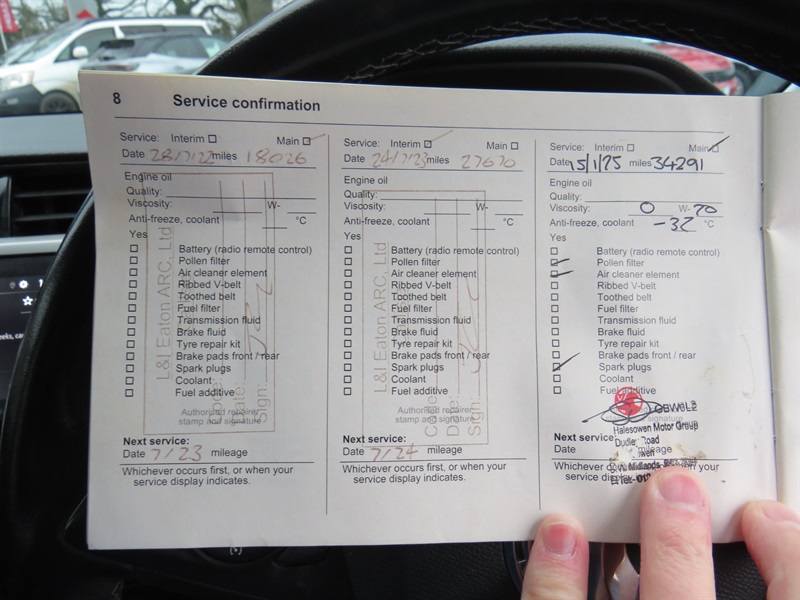 8 Service confirmation
Service: Interim Main
Date 28/7/22 miles 18026
Engine oil
Quality:
Viscosity: W-
Anti-freeze, coolant °C
Yes
Battery (radio remote control)
Pollen filter
Air cleaner element
Ribbed V-belt
Toothed belt
Fuel filter
Transmission fluid
Brake fluid
Tyre repair kit
Brake pads front / rear
Spark plugs
Coolant
Fuel additive
L&I Eaton ARC, Ltd
Date:
Sign:
Authorised repairer
stamp and signature
Next service:
Date 7/23 mileage
Whichever occurs first, or when your
service display indicates.
Service: Interim Main
Date 24/7/23 miles 27670
Engine oil
Quality:
Viscosity: W-
Anti-freeze, coolant °C
Yes
Battery (radio remote control)
Pollen filter
Air cleaner element
Ribbed V-belt
Toothed belt
Fuel filter
Transmission fluid
Brake fluid
Tyre repair kit
Brake pads front / rear
Spark plugs
Coolant
Fuel additive
L&I Eaton ARC, Ltd
Date:
Sign:
Authorised repairer
stamp and signature
Next service:
Date 7/24 mileage
Whichever occurs first, or when your
service display indicates.
Service: Interim Main
Date 15/1/25 miles 34291
Engine oil
Quality:
Viscosity: 0 W-20
Anti-freeze, coolant -32 °C
Yes
Battery (radio remote control)
Pollen filter
Air cleaner element
Ribbed V-belt
Toothed belt
Fuel filter
Transmission fluid
Brake fluid
Tyre repair kit
Brake pads front / rear
Spark plugs
Coolant
Fuel additive
Halesowen Motor Group
Road
Next service:
Date mileage
Whichever occurs your
service